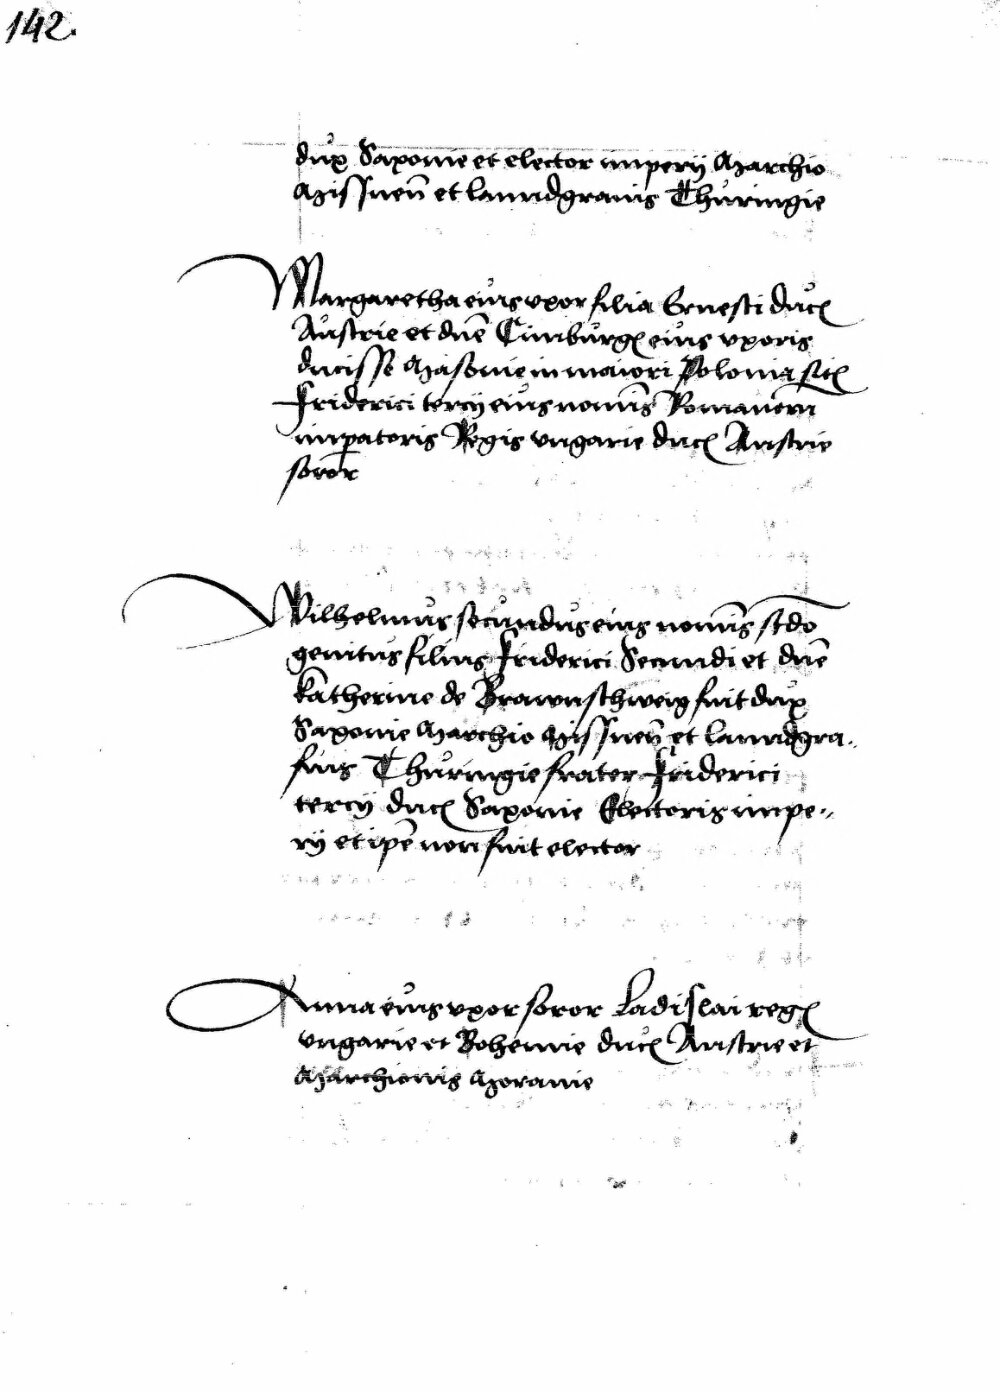 142.
dux Saxonie et elector imperij Marchio
Missnen̄ et lanndgravis Thuringie
Margaretha eius uxor filia Ernesti duc
Austrie et dn̄e Cimburg eius uxoris
ducisse Masovie in maiori Polonia
Friderici tercij eius nom̄is Romanor̄m
imp̄atoris Regis ungarie duc Austrie
soror
Wilhelmus secundus eius nom̄is scdo
genitus filius Friderici Secundi et dn̄e
katherine de Brawnschweig fuit dux
Saxonie Marchio Missnen̄ et lanndgra„
fius Thuringie frater Friderici
tercij duc Saxonie Electoris impe„
rij et ip̄e non fuit elector
Anna eius uxor soror Ladislai reg
ungarie et Bohemie duc Austrie et
Marchionis Moravie